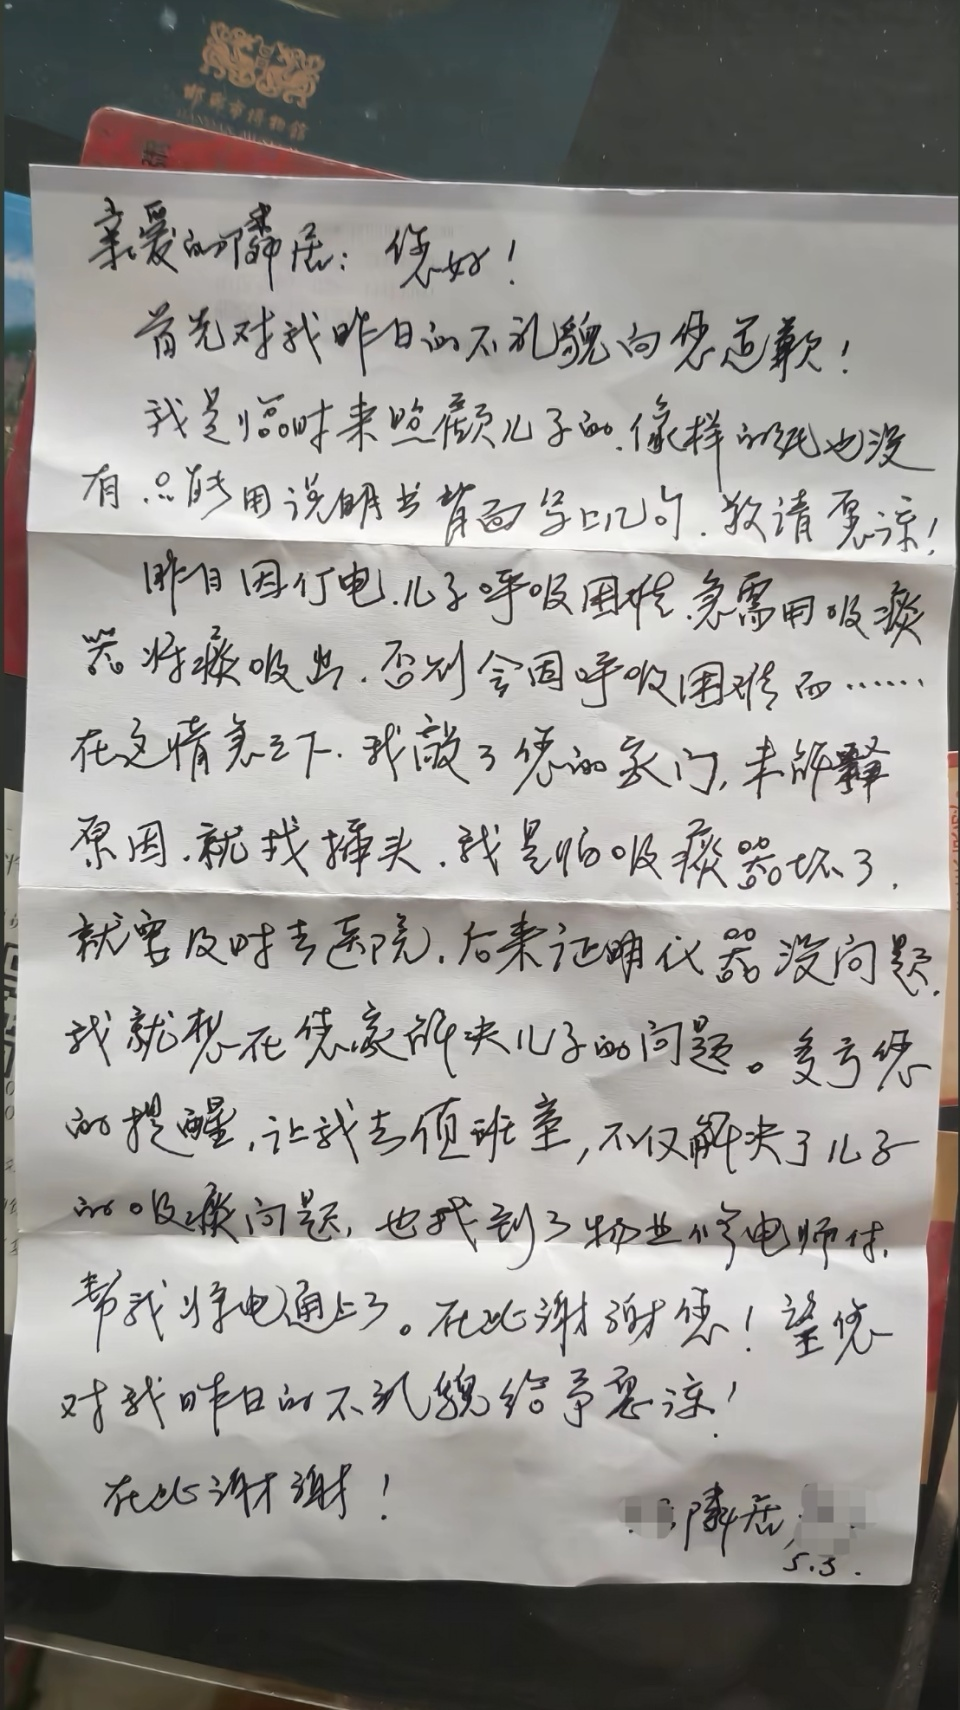 邯郸市博物馆
亲爱的隣居：您好！
首先对我昨日的不礼貌向您道歉！
我是临时来照顾儿子的.像样的纸也没
有.只能用说明书背面写上几句.敬请原谅！
昨日因停电.儿子呼吸困难.急需用吸痰
器将痰吸出.否则会因呼吸困难而……
在这情急之下.我敲了您的家门,未解释
原因.就找插头.我是怕吸痰器坏了.
就要及时去医院.后来证明仪器没问题.
我就想在您家解决儿子的问题。多亏您
的提醒,让我去值班室,不仅解决了儿子
的吸痰问题,也找到了物业修电师付.
帮我将电通上了。在此谢谢您！望您
对我昨日的不礼貌给予原谅！
在此谢谢！
隣居
5.3.